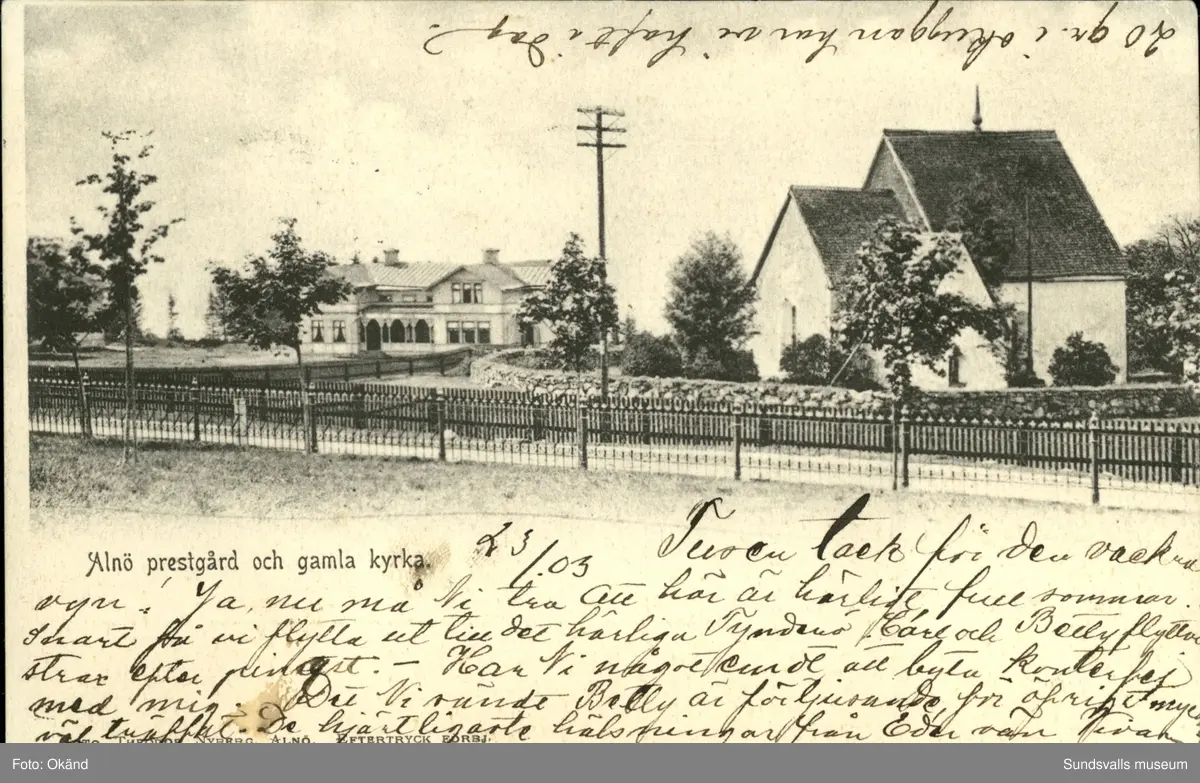 20 gr. i skuggan har vi haft i dag.
Alnö prestgård och gamla kyrka.
23/
/03 Tusen tack för den vackra
vyn! Ja, nu må Ni tro att här är härligt full sommar.
Snart få vi flytta ut till det härliga Tynderö. Carl och Betty flytta
strax efter pingst. – Har Ni något emot att byta konterfej
med mig. Det Ni sände Betty är förtjusande, för öfrigt myc
väl träffadt. De hjärtligaste hälsningar från Eder vän
Theodor Nyberg, Alnö. Eftertryck förbj.
Foto: Okänd
Sundsvalls museum